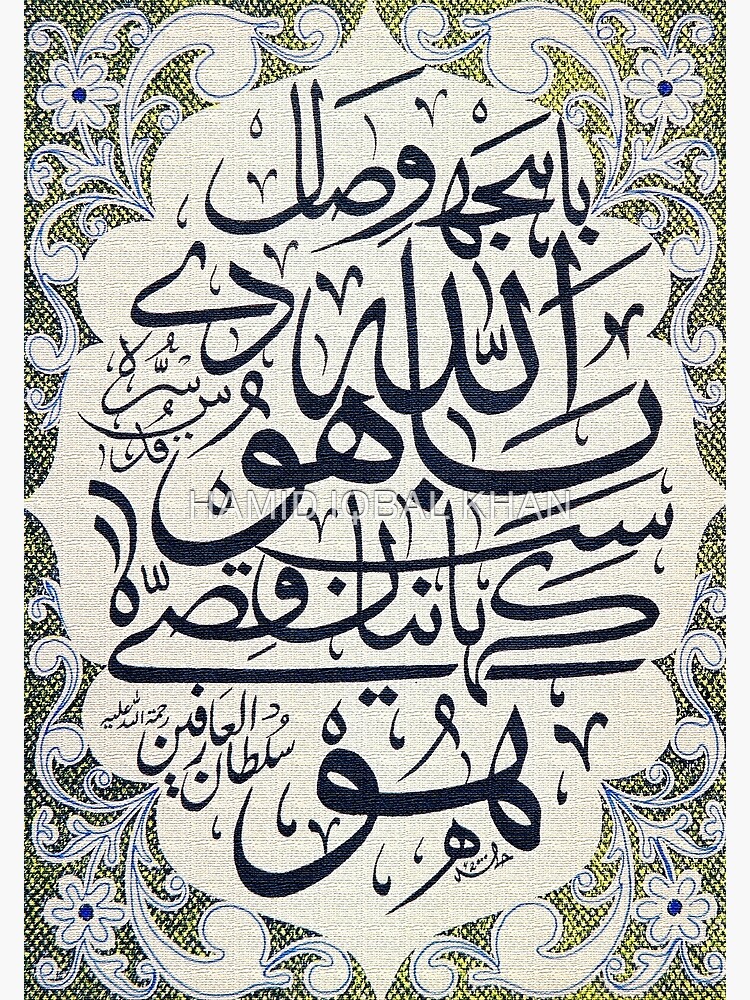 باہجھ وصال
اللہ دے
باھو قدس سرہ
سب
کہانیاں قصے
ھو
سلطان العارفین رحمۃ اللہ علیہ
HAMID IQBAL KHAN